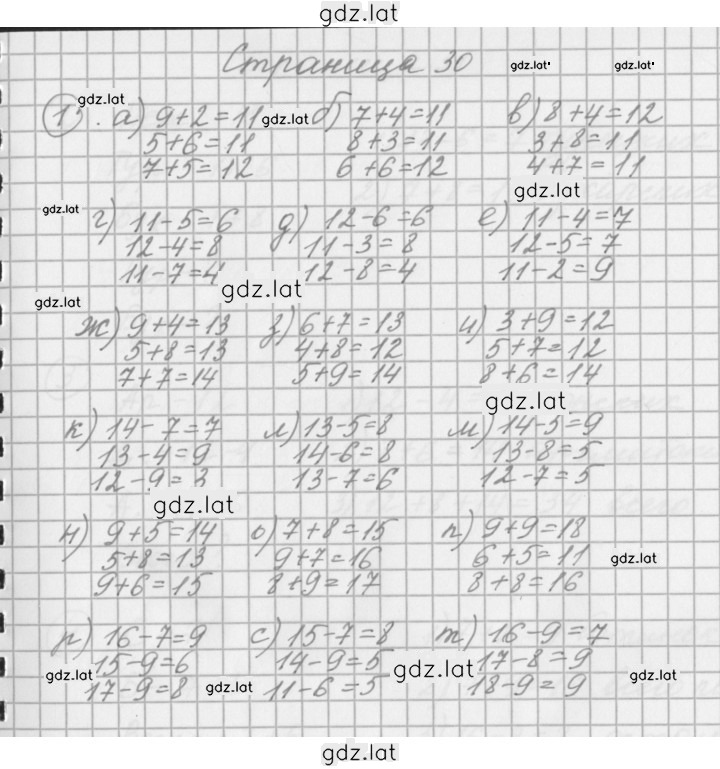 gdz.lat
Страница 30 gdz.lat gdz.lat
gdz.lat
1. а) 9+2=11 gdz.lat б) 7+4=11 в) 8+4=12
5+6=11 8+3=11 3+8=11
7+5=12 6+6=12 4+7=11
gdz.lat
gdz.lat
г) 11-5=6 д) 12-6=6 е) 11-4=7
12-4=8 11-3=8 12-5=7
11-7=4 12-8=4 11-2=9
gdz.lat
gdz.lat
ж) 9+4=13 з) 6+7=13 и) 3+9=12
5+8=13 4+8=12 5+7=12
7+7=14 5+9=14 8+6=14
gdz.lat
к) 14-7=7 л) 13-5=8 м) 14-5=9
13-4=9 14-6=8 13-8=5
12-9=3 13-7=6 12-7=5
gdz.lat
н) 9+5=14 о) 7+8=15 п) 9+9=18
5+8=13 9+7=16 6+5=11 gdz.lat
9+6=15 8+9=17 8+8=16
р) 16-7=9 с) 15-7=8 т) 16-9=7
15-9=6 14-9=5 gdz.lat 17-8=9
gdz.lat 17-9=8 gdz.lat 11-6=5 18-9=9 gdz.lat
gdz.lat